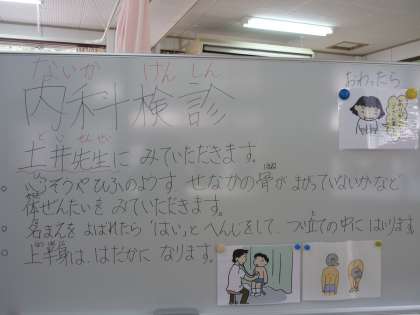 ないか けんしん
内科検診
おわったら
どいせんせい
土井先生に みていただきます。
・心ぞうやひふのようす せなかの骨が まがっていないかなど
体ぜんたいを みていただきます。
・名まえを よばれたら「はい」と へんじをして、つい立ての中に はいります。
・上半身は、はだかに なります。